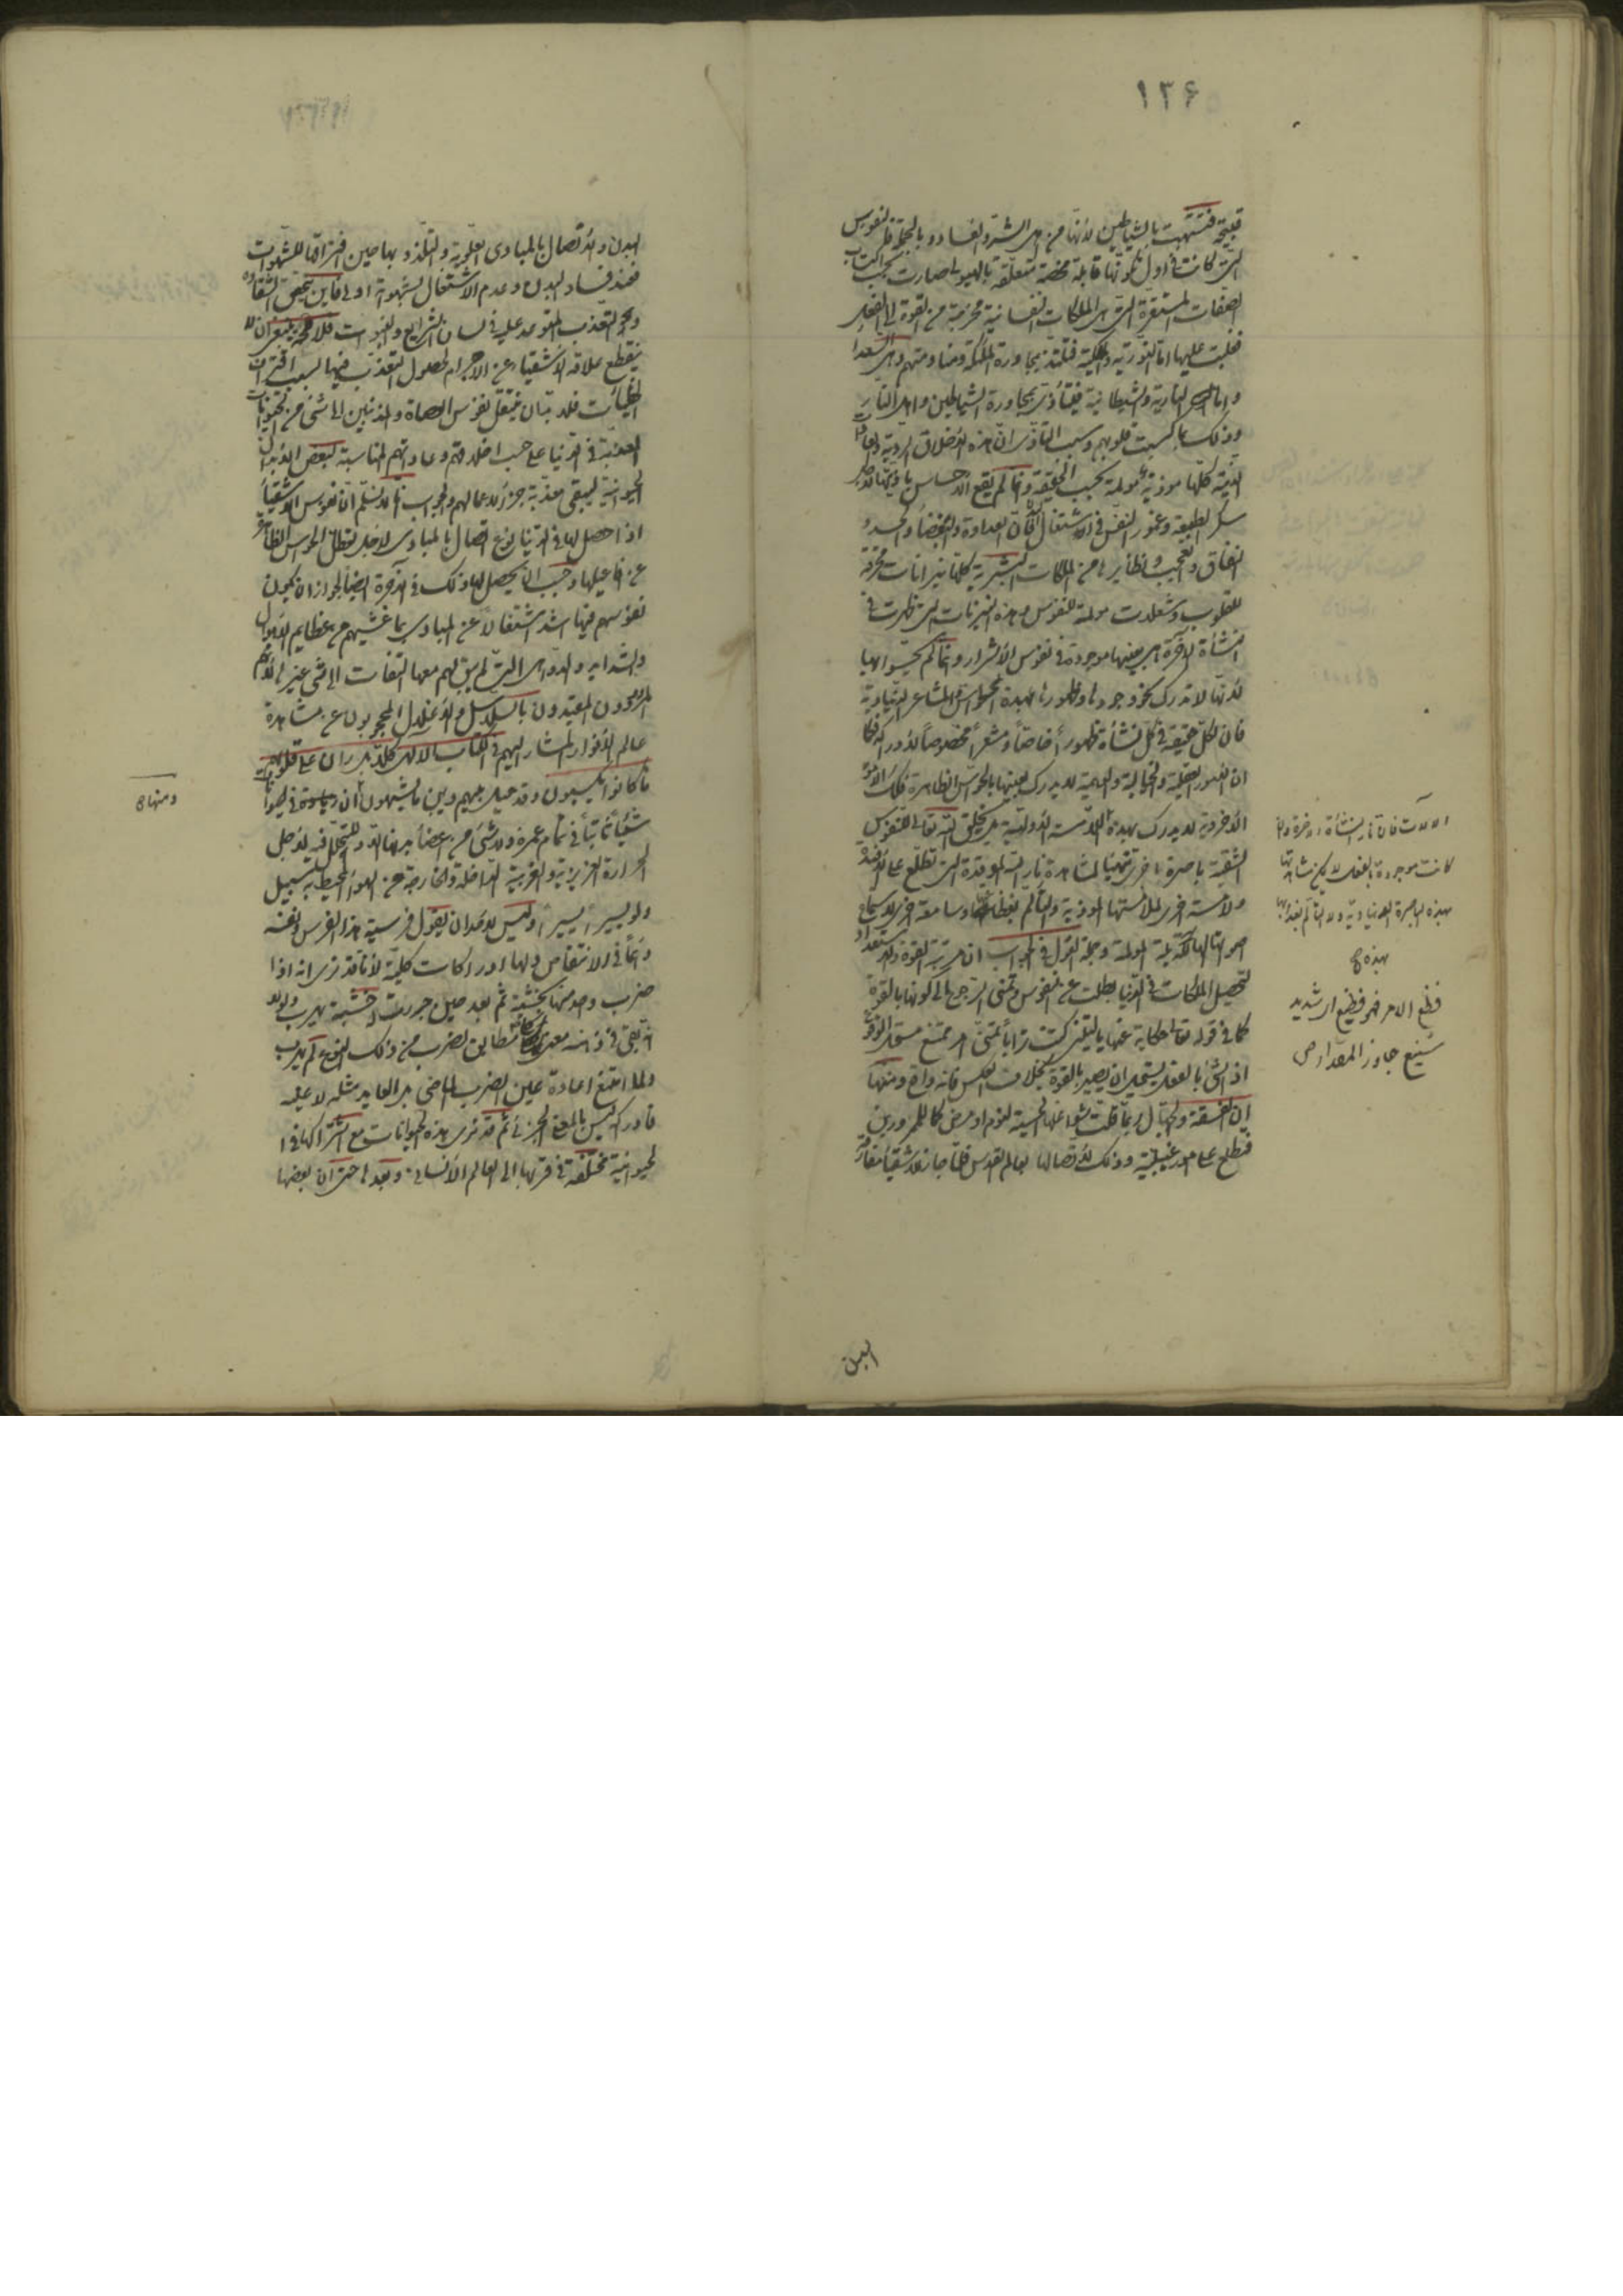 ١٣۶
قبيحة فتشبهت بالشياطين لأنها من اهل الشر والفساد وبالجملة فالنفوس
التي كانت في اول تكونها قابلة محضة متعلقة بالهيولى صارت بحسب اكتساب
الصفات المستقرة التي هي الملكات النفسانية مخرجة من القوة الى الفعل
فغلبت عليها اما النورية والملكية فتلتذ بمجاورة الملئكة ومنا ومنهم وهي السعدا
واما النارية والشيطانية فيتأذى بمجاورة الشياطين واهل النار
وذلك بما كسبت قلوبهم وسبب التأذى ان هذه الاخلاق الردية والعادات
الدنية كلها موذية مولمة بحسب الحقيقة وانما لم يقع الاحساس باذيتها
سكر الطبيعة وغمور النفس في الاشتغال فان العداوة والبغضاء والحسد و
النفاق والعجب ونظايرها من الملكات البشرية كلها نيرانات محرقة
للقلوب وشعلات مولمة للنفوس وهذه النيرانات التي ظهرت في
النشأة الآخرة هي بعينها موجودة في نفوس الأشرار وانما لم يحسوا بها
لانها لا تدرك نحو وجودها وظهورها بهذه الحواس والمشاعر الدنياوية
فان لكل حقيقة في كل نشأة ظهوراً خاصاً ومشعراً مخصوصاً لادراكه فكما
ان الصور العقلية والخيالية والوهمية لا يدرك بعينها بالحواس الظاهرة فكذلك الامور
الاخروية لا يدرك بهذه اللامسة الاولية بل يخلق الله تعالى للنفوس
الشقية باصرة اخرى تتهيأ لمشاهدة نار الله الموقدة التي تطلع على الافئدة
ولامسة اخرى لملامستها الموذية والتألم بفظاعتها وسامعة اخرى لاسماع
اصواتها الهائلة المولمة وجملة القول في الجواب ان مرتبة القوة والاستعداد
لتحصيل الملكات في الدنيا بطلت عن النفوس وتمنى الرجوع الى كونها بالقوة
كما في قوله تعالى حكاية عنها يا ليتني كنت تراباً تمنى امر ممتنع مستحيل الوقوع
اذ الشئ بالفعل يستحيل ان يصير بالقوة بخلاف العكس فانه واقع ومنها
ان الفسقة والجهال ربما قلت شواغلها الحسية لنوم او مرض كما للممرورين
فتطلع على امور غيبية وذلك لاتصالها بعالم القدس فلما جاز للاشقيا مفارقة
البدن
الآلات فان نار النشأة الاخرة وان
كانت موجودة بالفعل لا يمكن مشاهدتها
بهذه الباصرة الدنياوية ولا التألم بعذابها
بهذه
فظع الامر فهو فظيع اى شديد
شنيع جاوز المقدار ص
البدن والاتصال بالمبادى العلوية والتلذذ بها حين افتراقها للشهوات
فعند فساد البدن وعدم الاشتغال بشهواته اولى فاين يتحقق الشقاوة
والتعذب المتوعد عليه في لسان الشرايع والنبوات فلا محة ينبغى ان لا
ينقطع علاقة الأشقياء عن الاجرام لحصول التعذب فيها بسبب اقتراف
الخطيئات فلا بد ان ينتقل نفوس العصاة والمذنبين الى شئ من الحيوانات
المعذبة في الدنيا على حسب اخلاقهم وعاداتهم المناسبة لبعض الابدان
الحيوانية ليبقى معذبة جزاء لاعمالهم والجواب انا لا نسلم ان نفوس الاشقياء
اذا حصل لها في الدنيا نوع اتصال بالمبادى لاجل تعطل الحواس الظاهرة
عن افاعيلها وجب ان يحصل لها ذلك في الآخرة ايضاً لجواز ان يكون
نفوسهم فيها اشد اشتغالاً عن المبادى بما غشيهم من عظايم الاهوال
والشدايد والدواهى التي لم يبق لهم معها التفات الى شئ غيرها لانهم
المردودون المقيدون بالسلاسل والأغلال المحجوبون عن مشاهدة
عالم الأنوار المشار اليهم في الكتاب الالهى كلا بل ران على قلوبهم
ما كانوا يكسبون وقد حيل بينهم وبين ما يشتهون ان في الحيوان
شيئاً ثابتاً في تمام عمره ولا شئ من اعضاء بدنه الا وللتحلل فيه لاجل
الحرارة الغريزية والغريبة الداخلة والخارجة عن الهواء المحيط به سبيل
ولو يسيراً يسيراً وليس لاحد ان يقول فرسية هذا الفرس ونفسه
دائماً في الانتقاص ولها ادراكات كلية لأنا قد نرى انه اذا
ضرب واحد منها بخشبة ثم بعد حين جردت خشبة يهرب ولولا
انه بقى في ذهنه معنى مطابق لضرب من ذلك النوع لم يهرب
ولما امتنع اعادة عين الضرب الماضى بل العايد مثله لا عينه
فادراكه ليس بالمعنى الجزئى ثم قد نرى هذه الحيوانات مع اشتراكها في
الحيوانية مختلفة في قربها الى العالم الأنسانى وبعدها حتى ان بعضها
ومنها